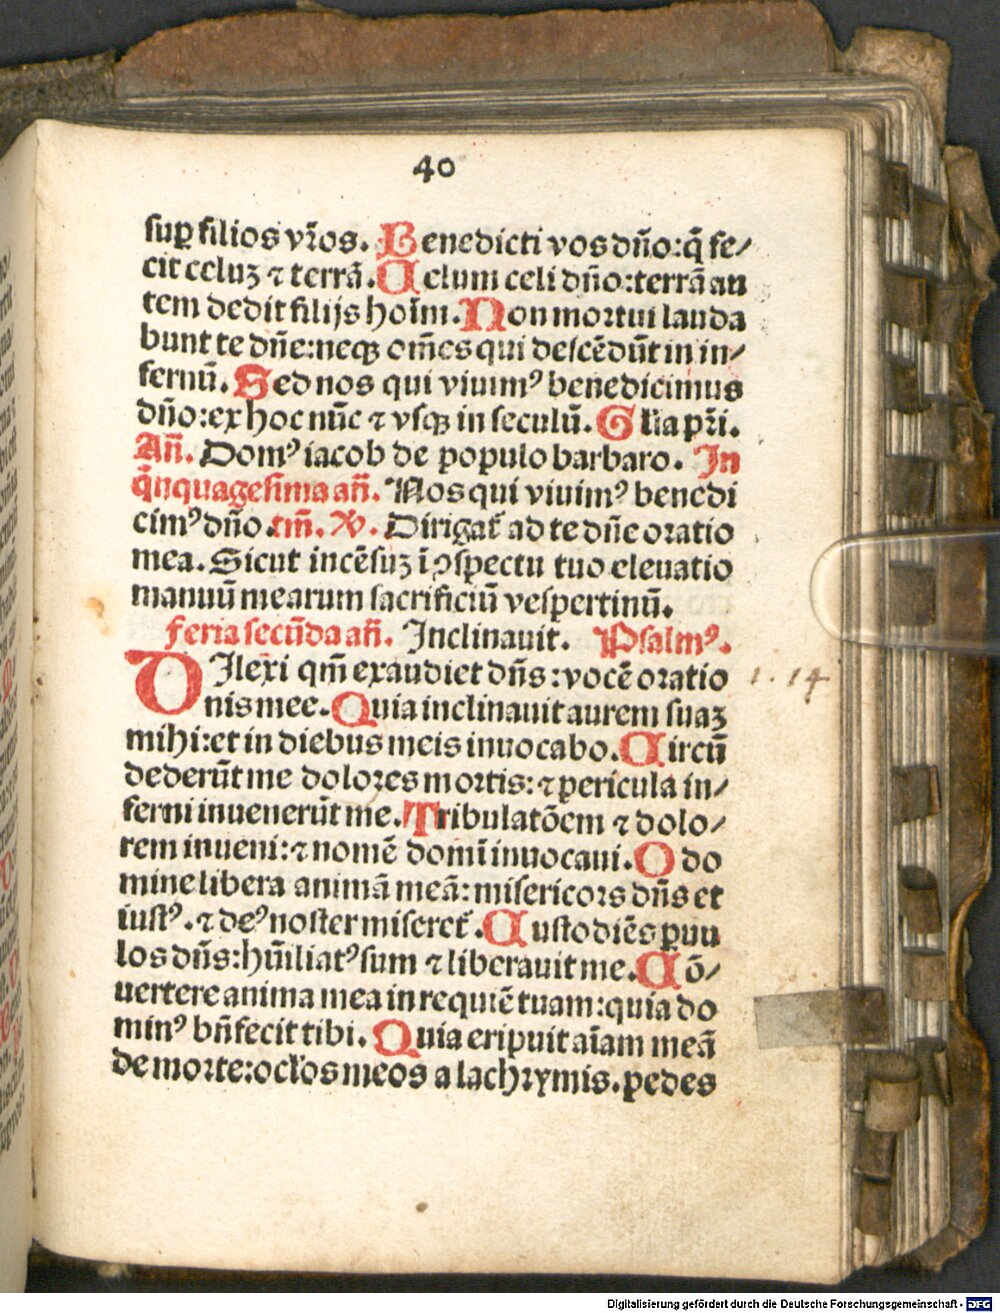 40
suꝑ filios vr̃os. Benedicti vos dño: q̃ fe⸗
cit celuʒ ⁊ terrã. Celum celi dño: terrã au
tem dedit filijs hoĩm. Non mortui lauda
bunt te dñe: neqꝫ om̃es qui descẽdũt in in⸗
fernũ. Sed nos qui viuimꝰ benedicimus
dño: ex hoc nũc ⁊ vsqꝫ in seculũ. Gl̃ia pr̃i.
Añ. Domꝰ iacob de populo barbaro. In
q̃nquagesima añ. Nos qui viuimꝰ benedi
cimꝰ dño. tm̃. ℣. Dirigat᷑ ad te dñe oratio
mea. Sicut incẽsuʒ ĩ ꝯspectu tuo eleuatio
manuũ mearum sacrificiũ vespertinũ.
Feria secũda añ. Inclinauit. Psalmꝰ.
DIlexi qm̃ exaudiet dñs: vocẽ oratio
1. 14
nis mee. Quia inclinauit aurem suaʒ
mihi: et in diebus meis inuocabo. Circũ
dederũt me dolores mortis: ⁊ pericula in⸗
ferni inuenerũt me. Tribulatõem ⁊ dolo⸗
rem inueni: ⁊ nomẽ domĩ inuocaui. O do
mine libera animã meã: misericors dñs et
iustꝰ. ⁊ deꝰ noster miseret᷑. Custodiẽs ꝑuu
los dñs: hũiliatꝰ sum ⁊ liberauit me. Cõ⸗
uertere anima mea in requiẽ tuam: quia do
minꝰ bñfecit tibi. Quia eripuit aĩam meã
de morte: ocl̃os meos a lachrymis. pedes
Digitalisierung gefördert durch die Deutsche Forschungsgemeinschaft - DFG